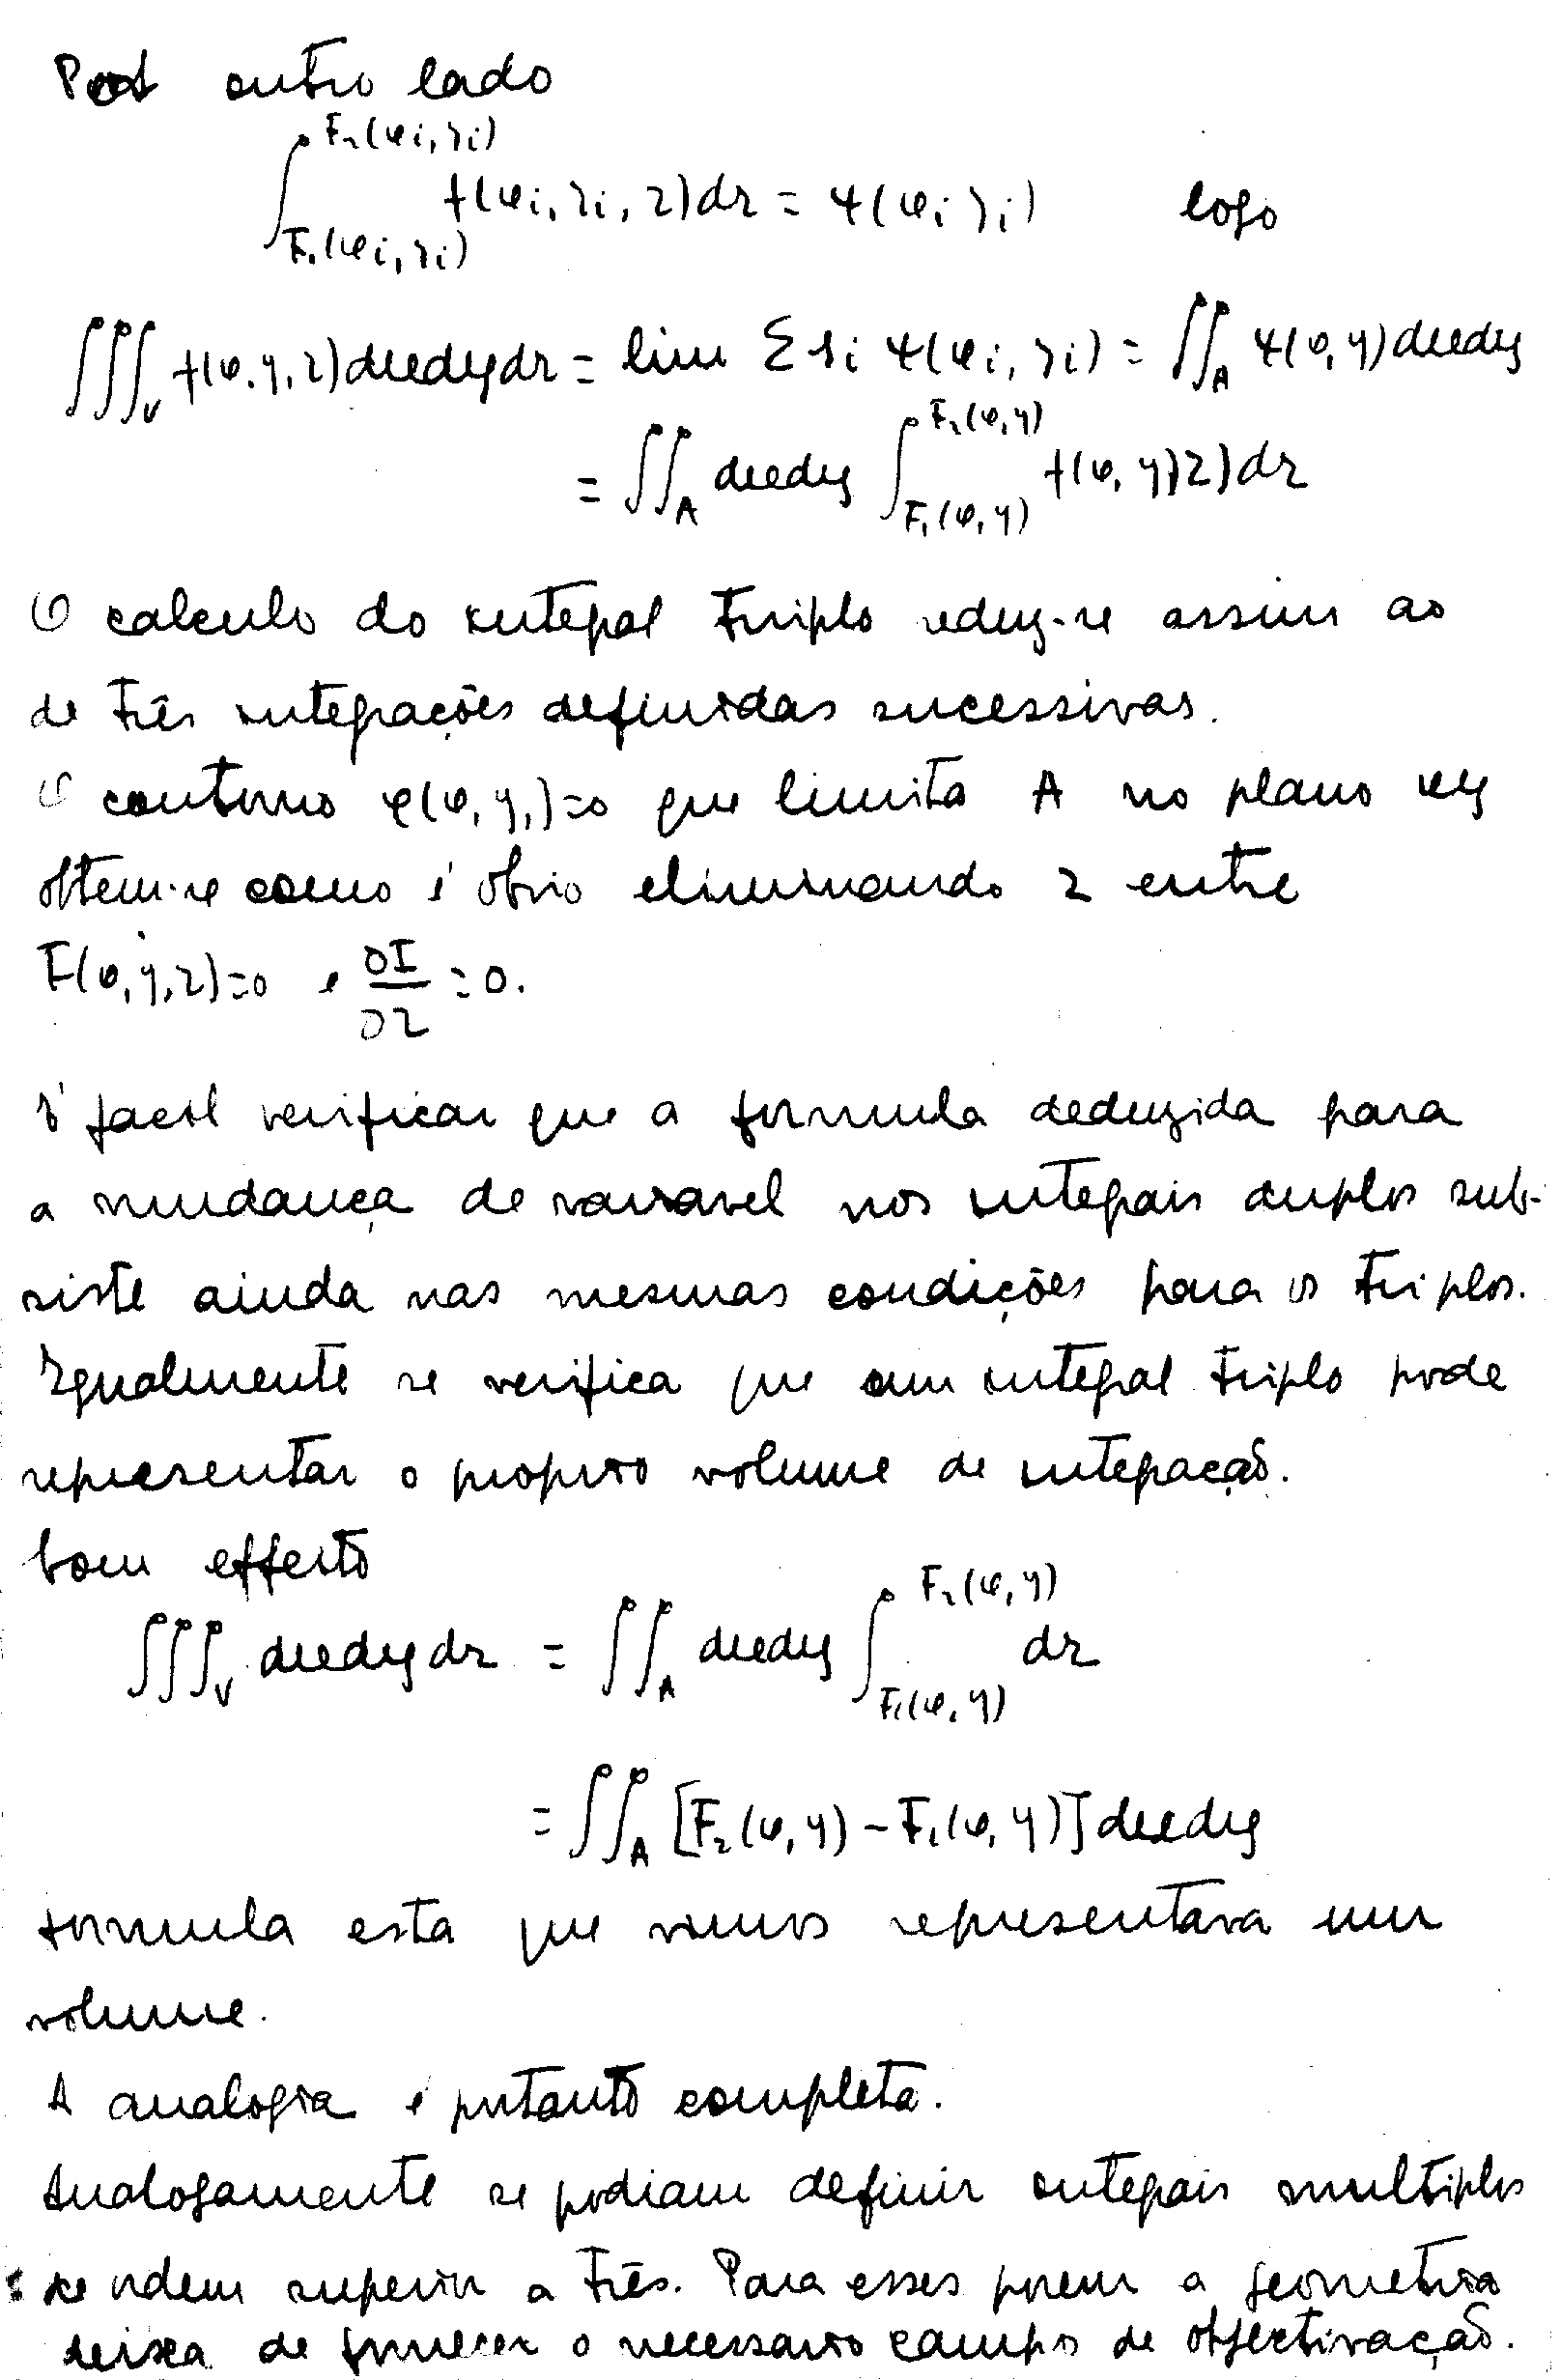 Por outro lado
∫_{F₁(xi, yi)}^{F₂(xi, yi)} f(xi, yi, z)dz = ψ(xi yi) logo
∫∫∫_V f(x, y, z)dxdydz = lim Σ si ψ(xi, yi) = ∫∫_A ψ(x, y)dxdy
= ∫∫_A dxdy ∫_{F₁(x, y)}^{F₂(x, y)} f(x, y, z)dz
O calculo do integral triplo reduz-se assim ao
de três integrações definidas sucessivas.
O contorno φ(x, y,)=0 que limita A no plano xy
obtem-se como é obvio eliminando z entre
F(x, y, z)=0 e ∂F/∂z = 0.
É facil verificar que a formula deduzida para
a mudança de variavel nos integrais duplos sub-
siste ainda nas mesmas condições para os triplos.
Igualmente se verifica que um integral triplo pode
representar o proprio volume de integração.
Com effeito
∫∫∫_V dxdydz = ∫∫_A dxdy ∫_{F₁(x, y)}^{F₂(x, y)} dz
= ∫∫_A [F₂(x, y) - F₁(x, y)] dxdy
formula esta que vimos representava um
volume.
A analogia é portanto completa.
Analogamente se podiam definir integrais multiplos
de ordem superior a três. Para esses porem a geometria
deixa de fornecer o necessario campo de objectivação.